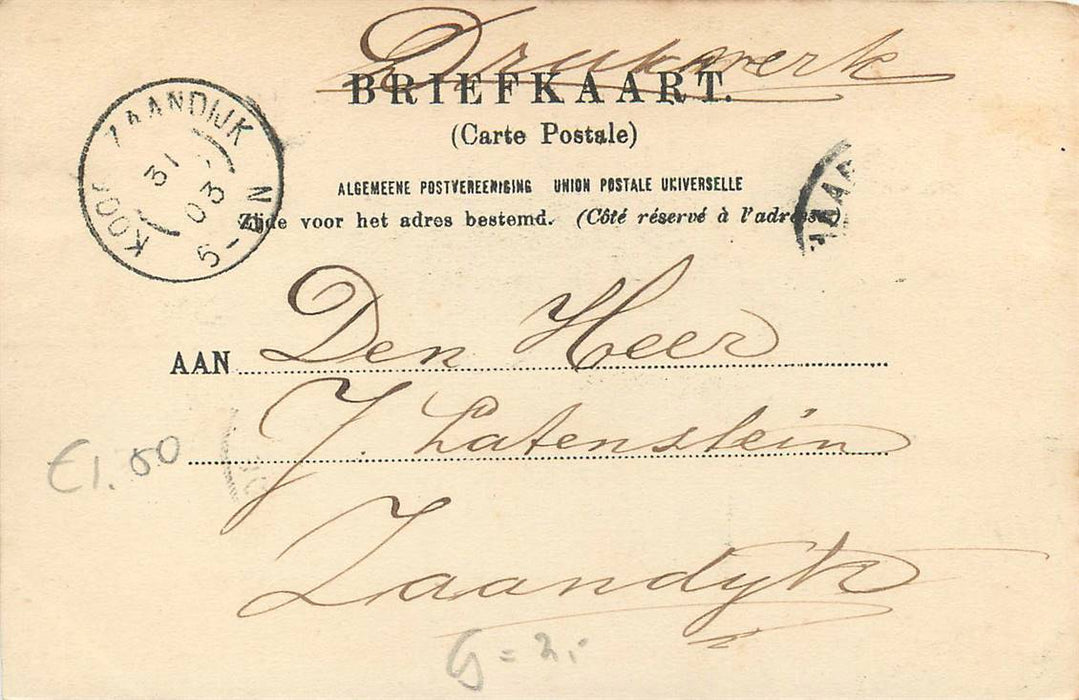 Drukwerk
BRIEFKAART.
(Carte Postale)
ALGEMEENE POSTVEREENIGING UNION POSTALE UNIVERSELLE
Zijde voor het adres bestemd. (Côté réservé à l'adresse)
KOOG ZAANDIJK
31
03
5- N
AAN Den Heer
J. Latenstein
Zaandyk
€1.50
G = 2,-